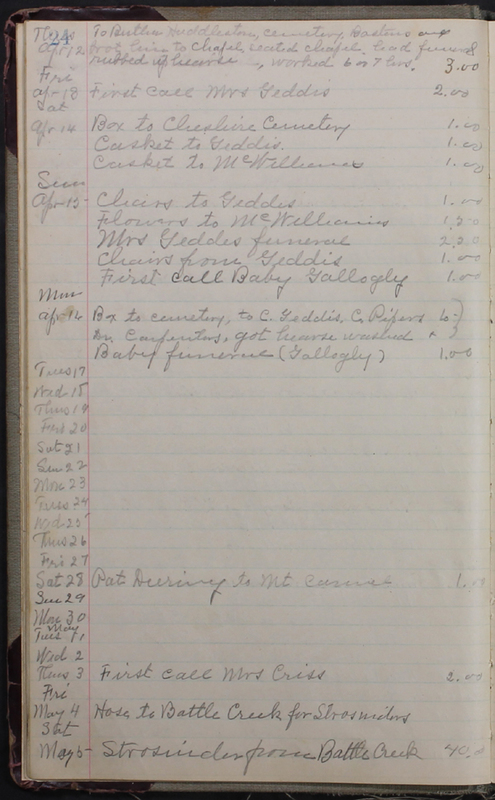 24
Thurs To Butler Huddleston, cemetery, Bastens and
Apr 12 took him to Chapel, seated chapel, lead funeral
rubbed up hearse, worked 6 or 7 hrs. 3.00
Fri
apr 13 First call Mrs Geddis 2.00
Sat
Apr 14 Box to Cheshire Cemetery 1.00
Casket to Geddis. 1.00
Casket to McWilliams 1.00
Sun
Apr 15 Chairs to Geddis 1.00
Flowers to McWilliams 1.50
Mrs Geddes funeral 2.50
Chairs from Geddis 1.00
First call Baby Gallogly 1.00
Mon
Apr 16 Box to cemetery, to C. Geddis, C. Pifers
Dr. Carpenters, got hearse washed
Baby funeral (Gallogly) 1.00
Tues 17
Wed 18
Thus 19
Fri 20
Sat 21
Sun 22
Mon 23
Tues 24
Wed 25
Thus 26
Fri 27
Sat 28 Pat Deering to Mt Carmel 1.00
Sun 29
Mon 30
May
Tues 1
Wed 2
Thus 3 First call Mrs Criss 2.00
Fri
May 4 Hose to Battle Creek for Strosniders
Sat
May 5 Strosnider from Battle Creek 40.00